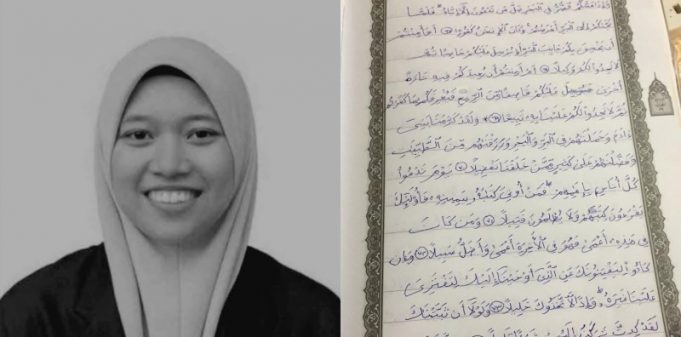 وَإِذَا مَسَّكُمُ الضُّرُّ فِي الْبَحْرِ ضَلَّ مَن تَدْعُونَ إِلَّا إِيَّاهُ فَلَمَّا
نَجَّىٰكُمْ إِلَى الْبَرِّ أَعْرَضْتُمْ وَكَانَ الْإِنسَٰنُ كَفُورًا ٦٧ أَفَأَمِنتُمْ
أَن يَخْسِفَ بِكُمْ جَانِبَ الْبَرِّ أَوْ يُرْسِلَ عَلَيْكُمْ حَاصِبًا ثُمَّ
لَا تَجِدُوا لَكُمْ وَكِيلًا ٦٨ أَمْ أَمِنتُمْ أَن يُعِيدَكُمْ فِيهِ تَارَةً
أُخْرَىٰ فَيُرْسِلَ عَلَيْكُمْ قَاصِفًا مِّنَ الرِّيحِ فَيُغْرِقَكُم بِمَا كَفَرْتُمْ
ثُمَّ لَا تَجِدُوا لَكُمْ عَلَيْنَا بِهِ تَبِيعًا ٦٩ وَلَقَدْ كَرَّمْنَا بَنِي
ءَادَمَ وَحَمَلْنَٰهُمْ فِي الْبَرِّ وَالْبَحْرِ وَرَزَقْنَٰهُم مِّنَ الطَّيِّبَٰتِ
وَفَضَّلْنَٰهُمْ عَلَىٰ كَثِيرٍ مِّمَّنْ خَلَقْنَا تَفْضِيلًا ٧٠ يَوْمَ نَدْعُوا
كُلَّ أُنَاسٍ بِإِمَٰمِهِمْ فَمَنْ أُوتِيَ كِتَٰبَهُ بِيَمِينِهِ فَأُولَٰئِكَ
يَقْرَءُونَ كِتَٰبَهُمْ وَلَا يُظْلَمُونَ فَتِيلًا ٧١ وَمَن كَانَ
فِي هَٰذِهِ أَعْمَىٰ فَهُوَ فِي الْآخِرَةِ أَعْمَىٰ وَأَضَلُّ سَبِيلًا ٧٢ وَإِن
كَادُوا لَيَفْتِنُونَكَ عَنِ الَّذِي أَوْحَيْنَا إِلَيْكَ لِتَفْتَرِيَ
عَلَيْنَا غَيْرَهُ وَإِذًا لَّاتَّخَذُوكَ خَلِيلًا ٧٣ وَلَوْلَا أَن ثَبَّتْنَٰكَ
لَقَدْ كِدتَّ تَرْكَنُ إِلَيْهِمْ شَيْئًا قَلِيلًا